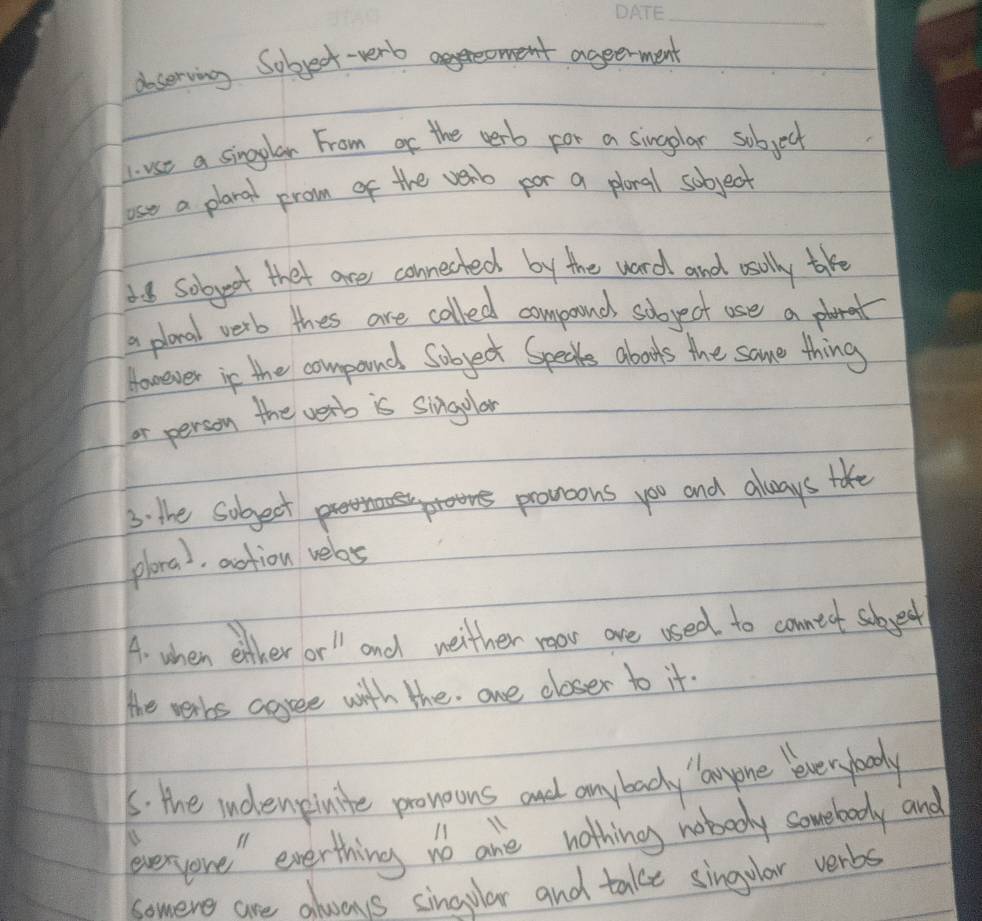 DATE
observing Subject-verb agereoment ageerment
1. use a singular From of the verb for a singolar subject
use a plaral prom of the verb por a ploral subject
2. Subyect thet are connected by the ward and usully take
a ploral verb thes are called compound subyect use a plural
However if the compound Subject Specks abouts the same thing
or person the verb is singular
3. the subyect pronoons you and always take
plora). action vebrs
4. when either or" and neither roov are used to connect subyect
the verbs agree with the. one closer to it.
5. the indenfinite pronouns and anybady "anyone "everyboody
"everyone" everthing "no one" nothing nobody somebody and
somene are always singular and take singular verbs